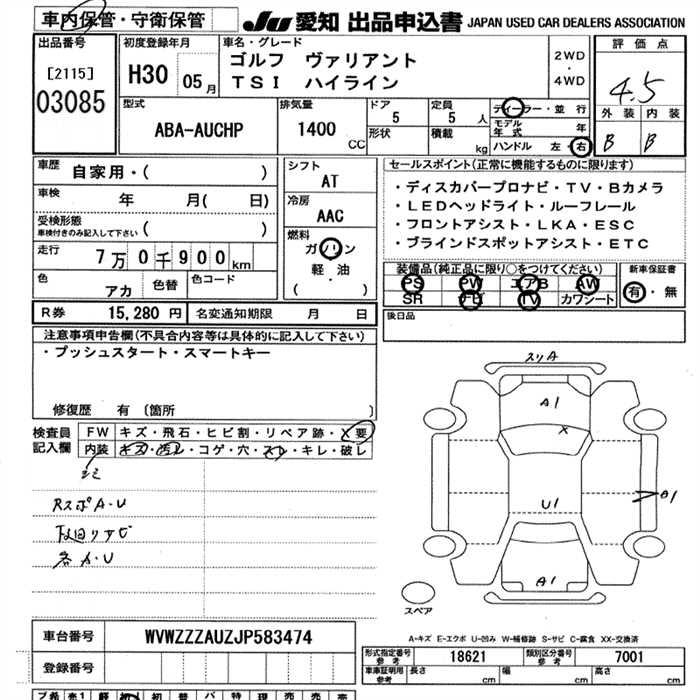 車内保管・守衛保管 JU 愛知 出品申込書 JAPAN USED CAR DEALERS ASSOCIATION
出品番号 [2115] 03085
初度登録年月 H30 05月
車名・グレード
ゴルフ ヴァリアント
TSI ハイライン
2WD・4WD
評価点 4.5
外装 内装
B B
型式 ABA-AUCHP
排気量 1400 CC
ドア 5
定員 5人
形状 積載 kg
ディーラー・並行
モデル年式 年
ハンドル 左・右
車歴 自家用・( )
車検 年 月( 日)
受検形態
車検付きのみ記入して下さい ( )
走行 7万0千900km
色 アカ 色替 色コード
シフト AT
冷房 AAC
燃料 ガソリン
軽・油
( )
セールスポイント(正常に機能するものに限ります)
・ディスカバープロナビ・TV・Bカメラ
・LEDヘッドライト・ルーフレール
・フロントアシスト・LKA・ESC
・ブラインドスポットアシスト・ETC
装備品(純正品に限り○をつけてください)
PS PW エアB AW
SR ナビ TV カワシート
新車保証書
有・無
R券 15,280円 名変通知期限 月 日
後日品
注意事項申告欄(不具合内容等は具体的に記入して下さい)
・プッシュスタート・スマートキー
修復歴 有 〔箇所 〕
検査員記入欄
FW キズ・飛石・ヒビ割・リペア跡・×要
内装 キズ・汚レ・コゲ・穴・スレ・キレ・破レ
シミ
RスポA・U
各A・U
スリA
A1
×
U1
A1
スペア
A-キズ E-エクボ U-凹み W-補修跡 S-サビ C-腐食 XX-交換済
車台番号 WVWZZZAUZJP583474
登録番号
形式指定番号 参考 18621
類別区分番号 参考 7001
車庫証明用 参考 長さ cm 幅 cm 高さ cm